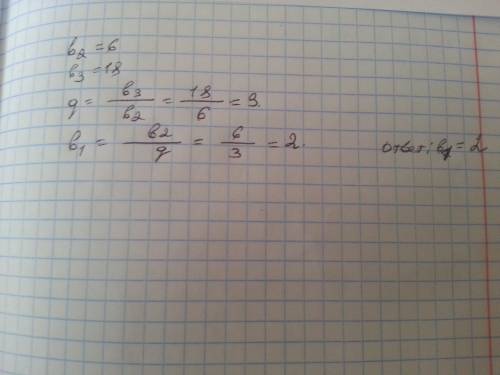 b₂ = 6
b₃ = 18
q = b₃/b₂ = 18/6 = 3.
b₁ = b₂/q = 6/3 = 2. Ответ: b₁ = 2